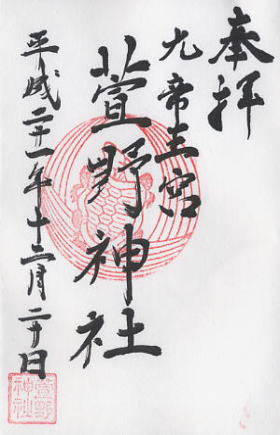 奉拝
九帝王宮
萱野神社
平成二十一年十二月二十日
萱野
神社